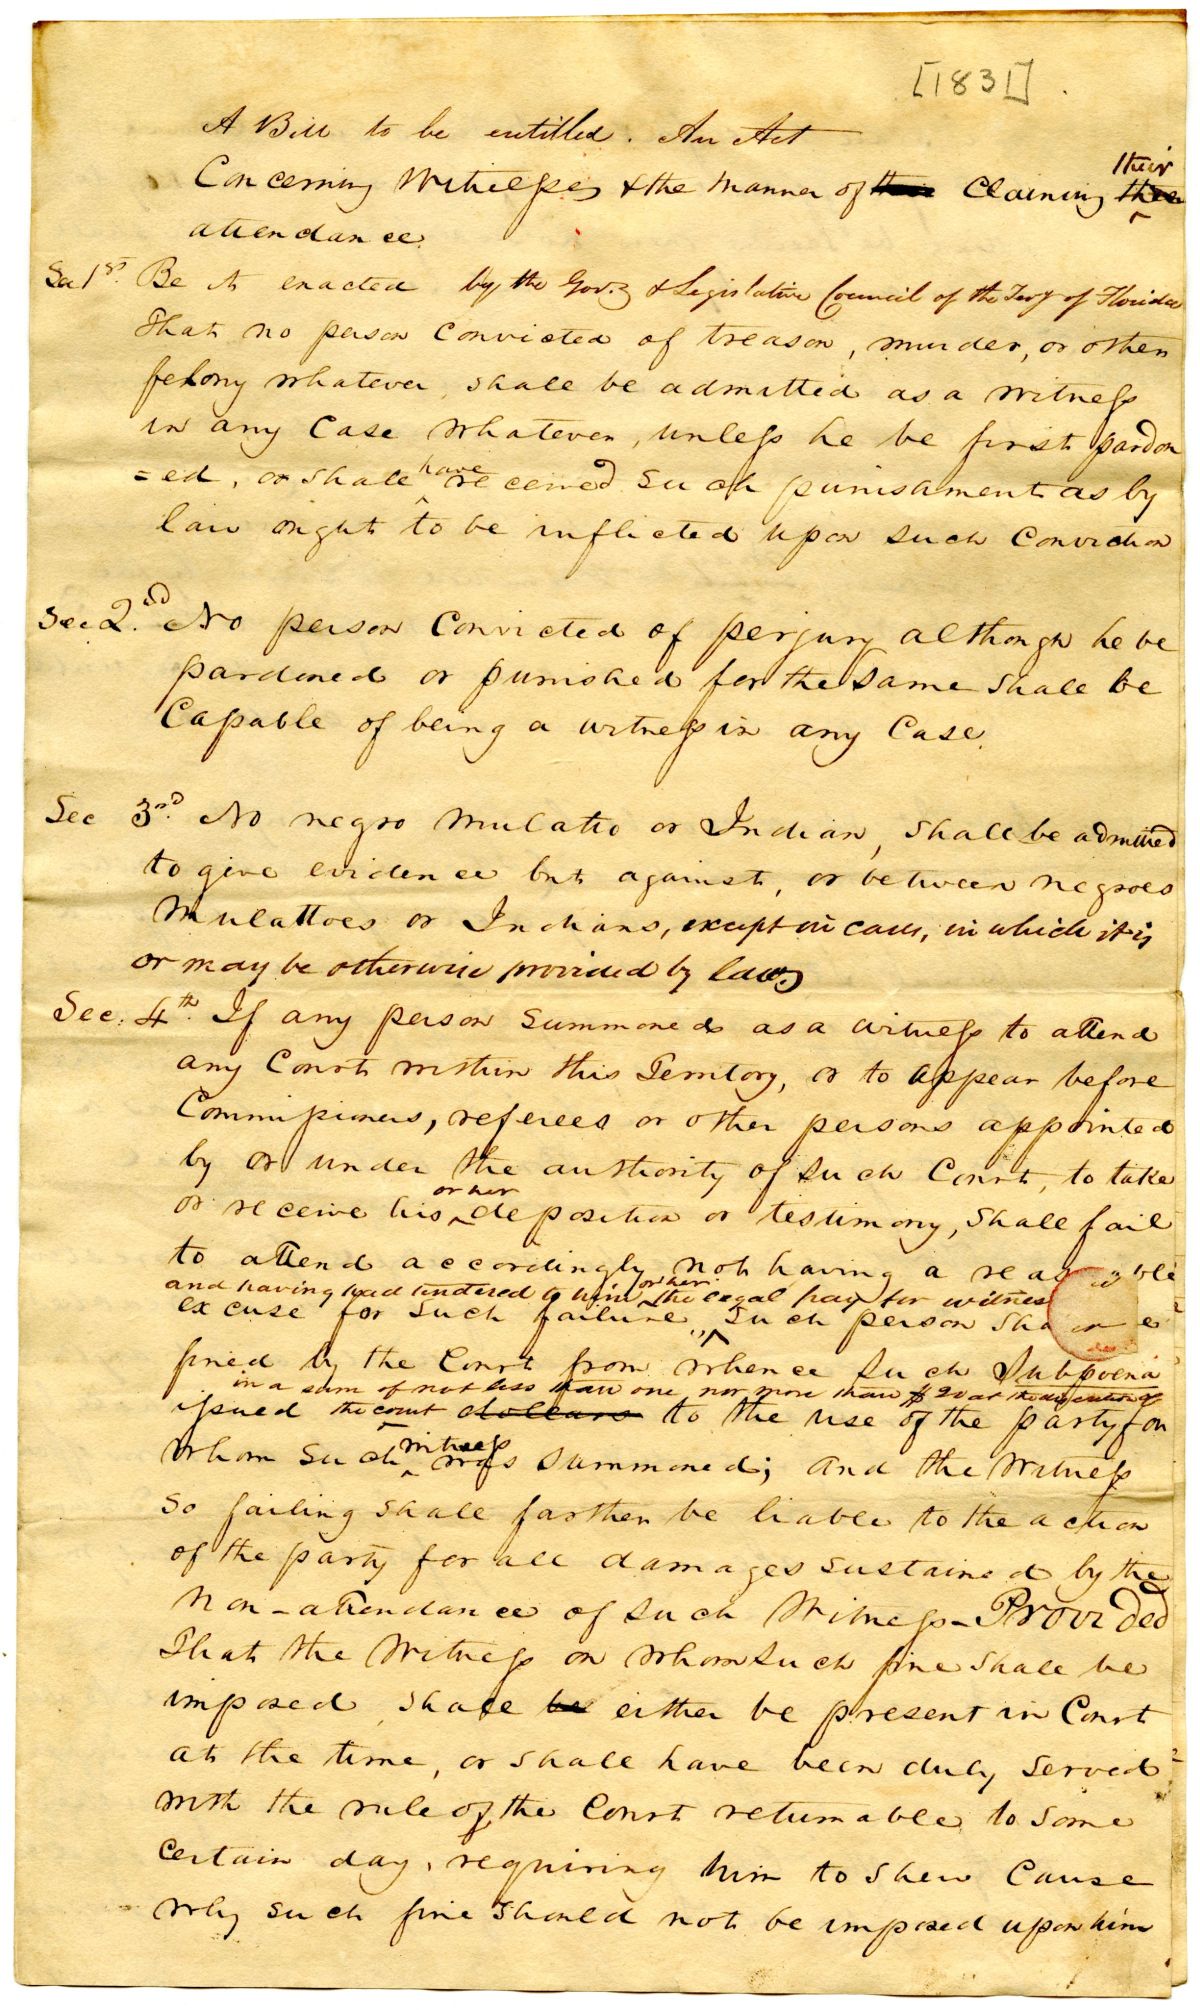 [1831]
A Bill to be entitled. An Act
Concerning Witnesses & the manner of Claiming their
attendance
Sec 1st. Be it enacted by the Gov.r & Legislative Council of the Ter.y of Florida
That no person Convicted of treason, murder, or other
felony whatever, shall be admitted as a Witness
in any Case whatever, unless he be first pardon
=ed, or shall have received such punishment as by
law ought to be inflicted upon such Conviction
Sec. 2.nd No person Convicted of perjury although he be
pardoned or punished for the same shall be
Capable of being a witness in any Case.
Sec 3.rd No negro mulatto or Indian, shall be admitted
to give evidence but against, or between negroes
Mulattoes or Indians, except in cases, in which it is
or may be otherwise provided by law.
Sec. 4th. If any person summoned as a witness to attend
any Court within this Territory, or to appear before
Commissioners, referees or other persons appointed
by or under the authority of such Court, to take
or receive his or her deposition or testimony, shall fail
to attend accordingly not having a
and having had tendered to him or her the legal pay for
excuse for such failure, such person
fined by the Court from whence such Subpoena
in a sum of not less than one nor more than $20 at the
issued the court dollars to the use of the party for
whom such witness was summoned; and the Witness
so failing shall farther be liable to the action
of the party for all damages sustained by the
Non-attendance of such Witness - Provided
That the Witness on whom such fine shall be
imposed, shall be either be present in Court
at the time, or shall have been duly served
with the rule of the Court returnable to some
certain day, requiring him to shew Cause
why such fine should not be imposed upon him